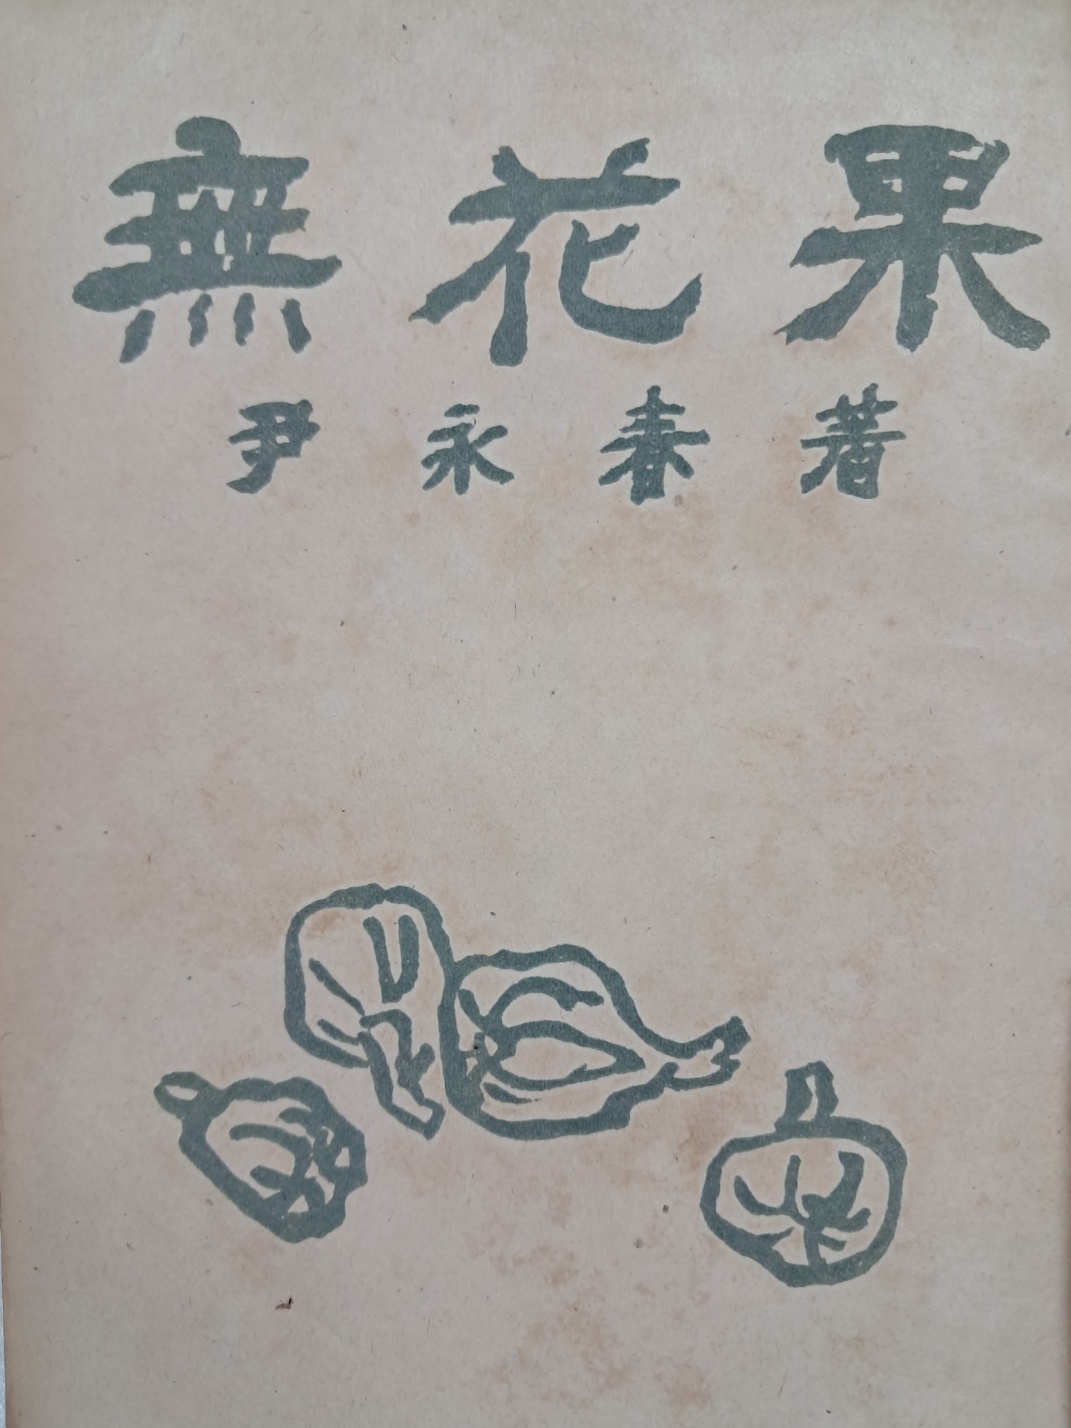 無花果
尹永春著